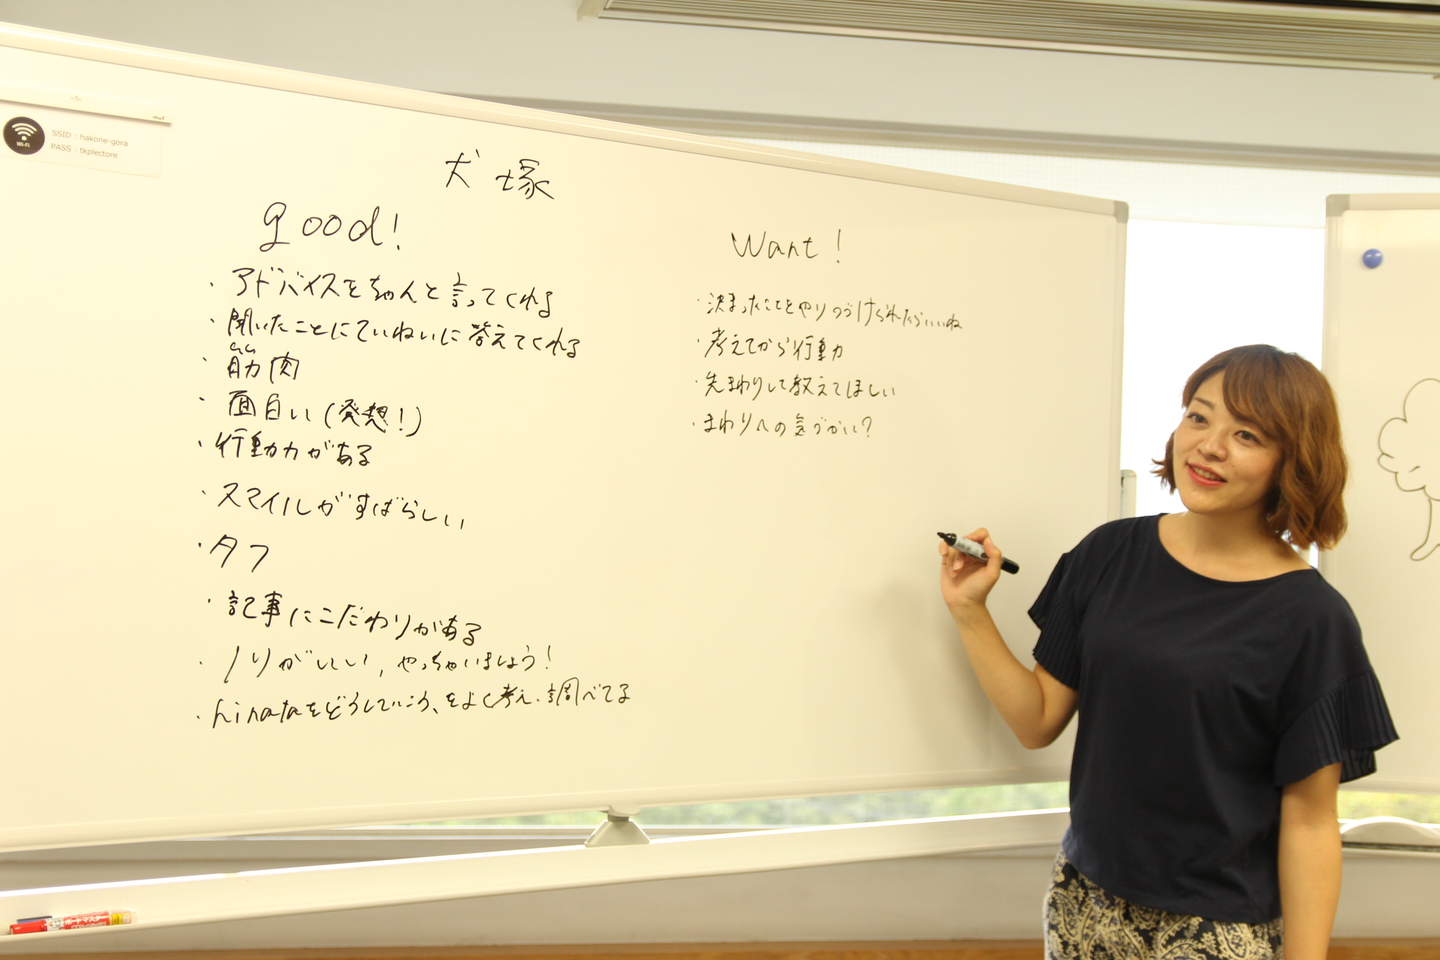 Wi-Fi
SSID : hakone-gora
PASS : tkplectore
犬塚
good!
・アドバイスをちゃんと言ってくれる
・聞いたことにていねいに答えてくれる
・筋肉
・面白い(発想!)
・行動力がある
・スマイルがすばらしい
・タフ
・記事にこだわりがある
・ノリがいい, やっちゃいましょう!
・hinataをどうしていこう、をよく考え、調べてる
Want!
・決まったことをやりつづけられたらいいね
・考えてから行動力
・先まわりして教えてほしい
・まわりへの気づかい?
ボードマスター